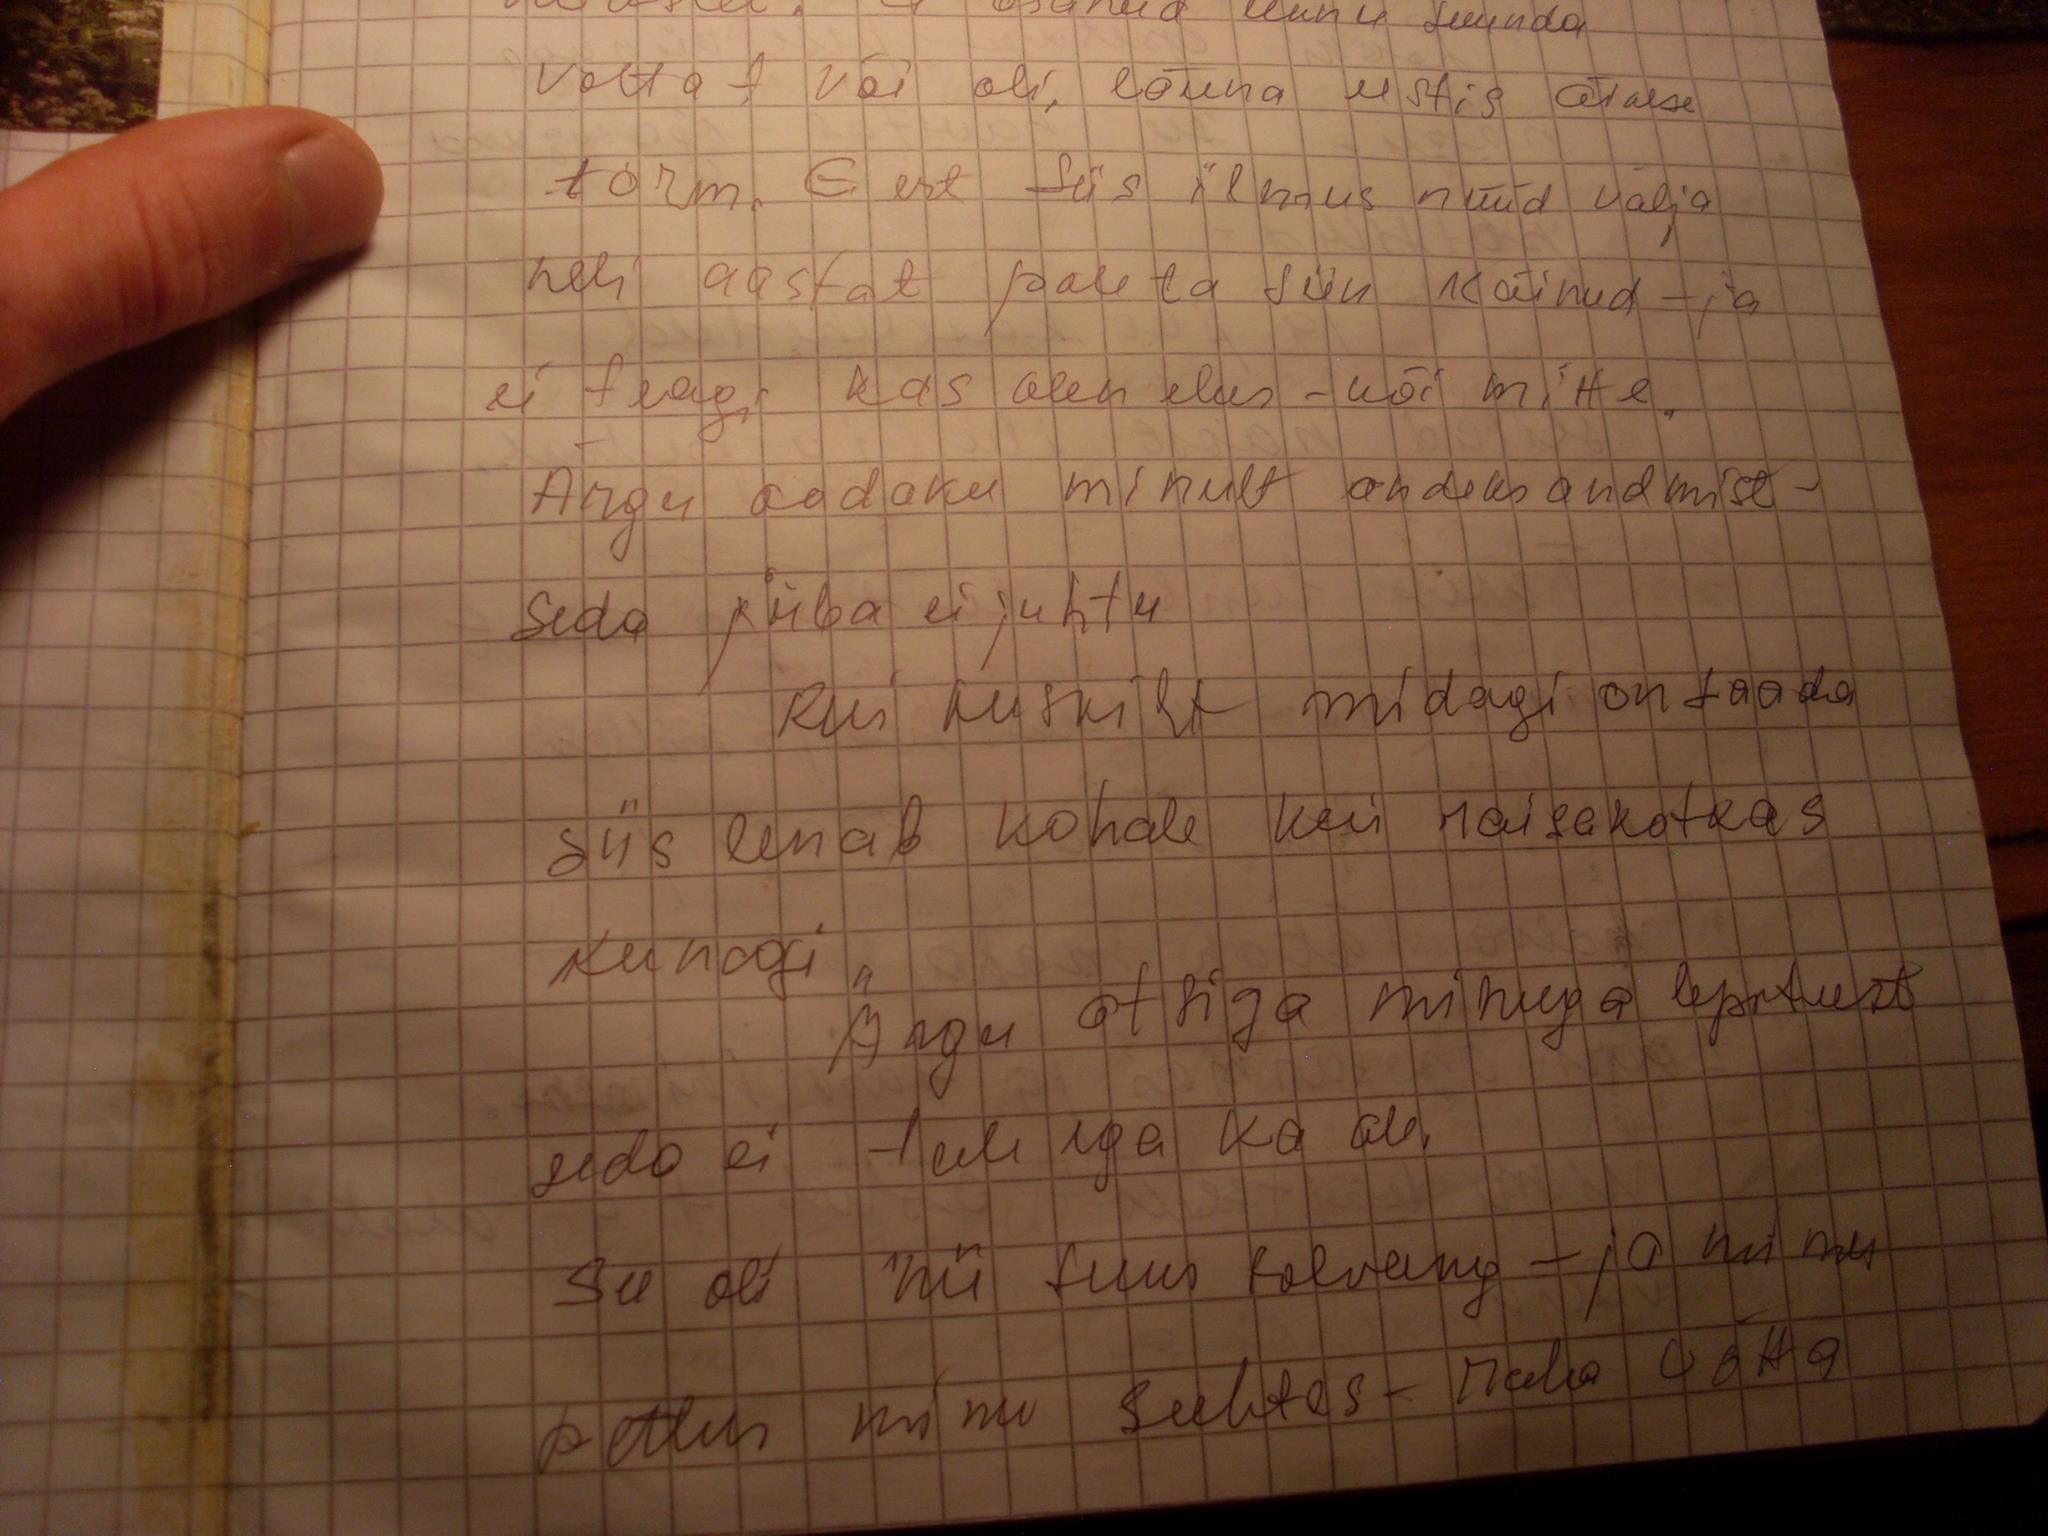 osanud minu suunda
võtta t või oli, lõuna ustis äikese
torm. Gert siis ilmus nüüd välja
neli aastat pole ta siin käinud - ja
ei teagi kas olen elus - või mitte.
Ärgu oodaku minult andeks andmist -
seda juba ei juhtu
Kui kuskilt midagi on saada
siis lenab kohale kui raisakotkas
kunagi
Ärgu otsiga minuga lepitust
seda ei tulega ka ole.
See oli nii suur solvang - ja minu
pettus minu suhtes - raha võtta